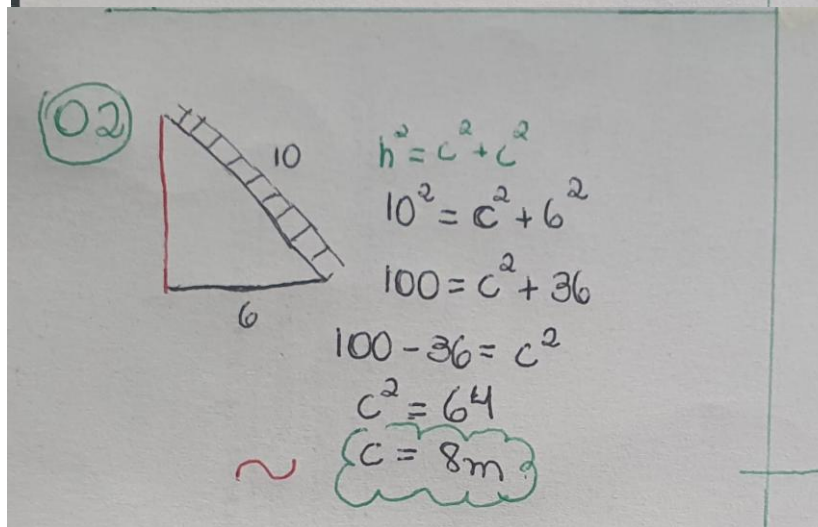 02
10
6
h² = c² + c²
10² = c² + 6²
100 = c² + 36
100 - 36 = c²
c² = 64
~ c = 8m